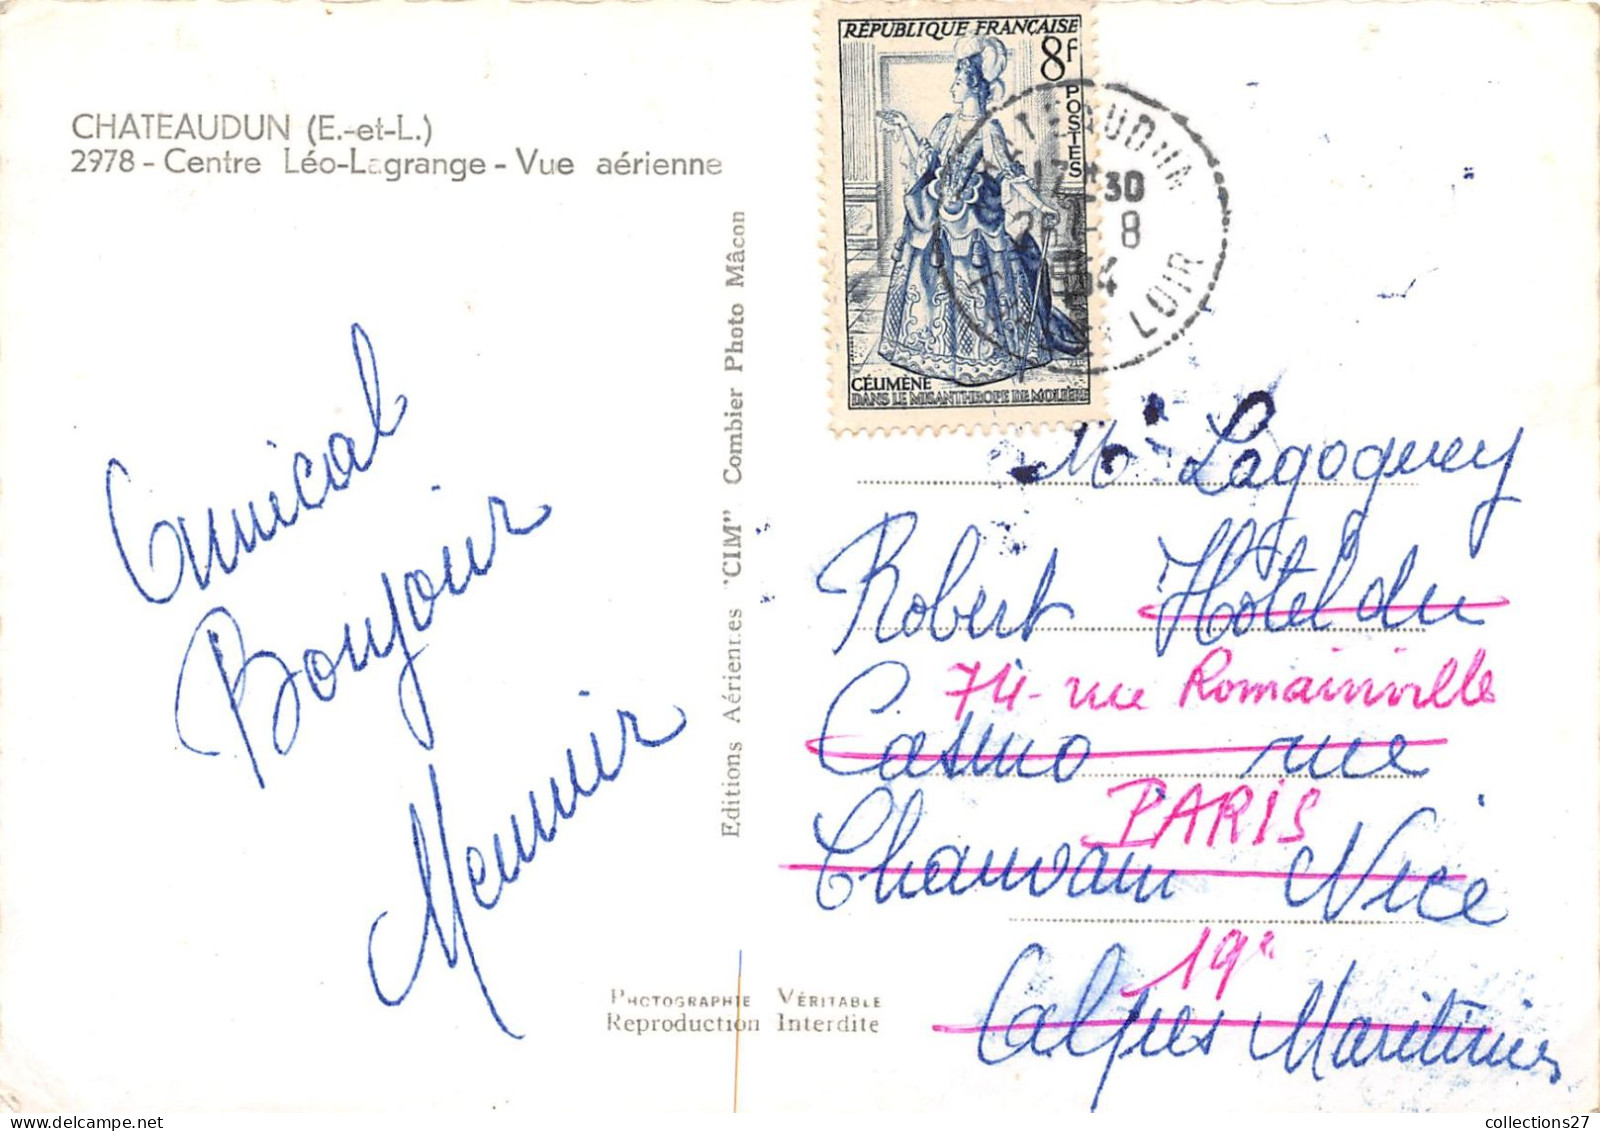 CHATEAUDUN (E.-et-L.)
2978 - Centre Léo-Lagrange - Vue aérienne
Amical
Bonjour
Meunier
Editions Aériennes "CIM" Combier Photo Mâcon
PHOTOGRAPHIE VÉRITABLE
Reproduction Interdite
RÉPUBLIQUE FRANÇAISE
8F
POSTES
CÉLIMÈNE
DANS LE MISANTHROPE DE MOLIÈRE
17 H 30
8
1954
LOIR
Mr Lagoguey
Robert Hotel du
74 - rue Romainville
Casino rue
PARIS
Chauvain Nice
19e
Alpes Maritimes
collections27